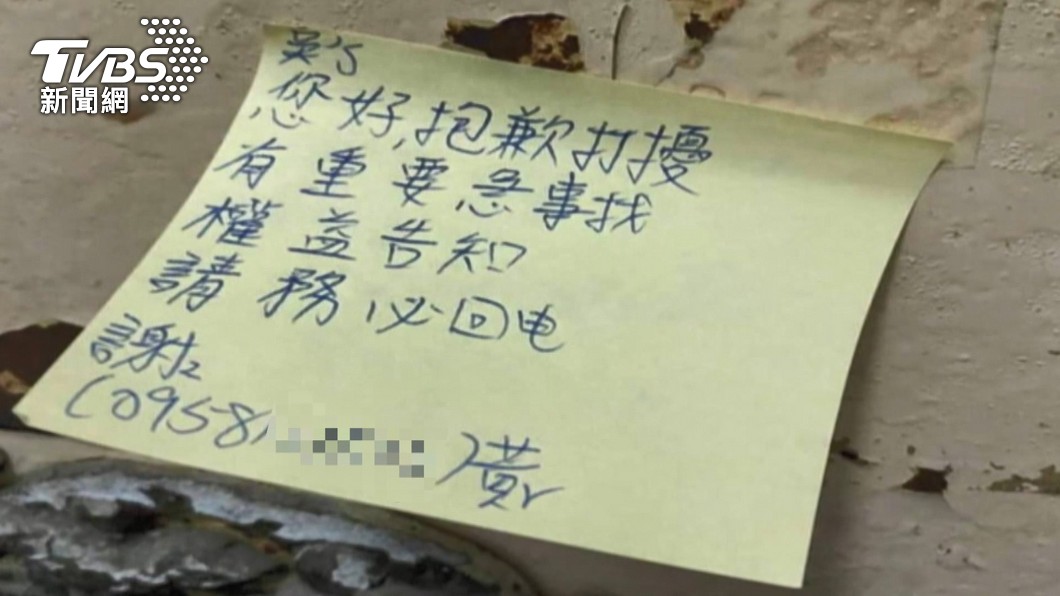 TVBS
新聞網
吳's
您好,抱歉打擾
有重要急事找
權益告知
請務必回电
謝2
(0958
)黃r